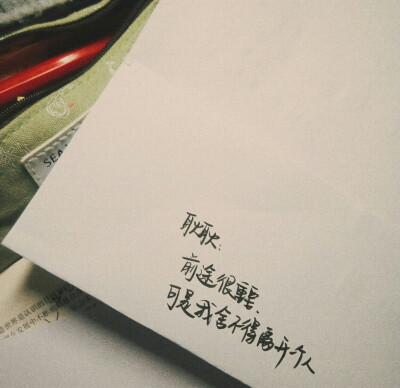 SEA
耿耿:
前途很重要,
可是我舍不得离开个人